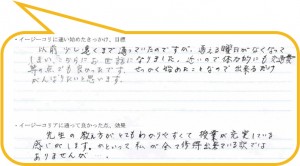 ・イージーコリアに通い始めたきっかけ、目標
以前、少し遠くまで通っていたのですが、通える曜日がなくなって
しまい、こちらにお世話になりました。近いので体力的にも交通費
等の点でも良かったです。せっかく始めたことなので出来るだけ
がんばりたいと思います。
・イージーコリアに通って良かった点、効果
先生の教え方がとてもわかりやすくて授業が充実している
感じがします。かといって私が全て修得出来ている訳では
ありませんが…。